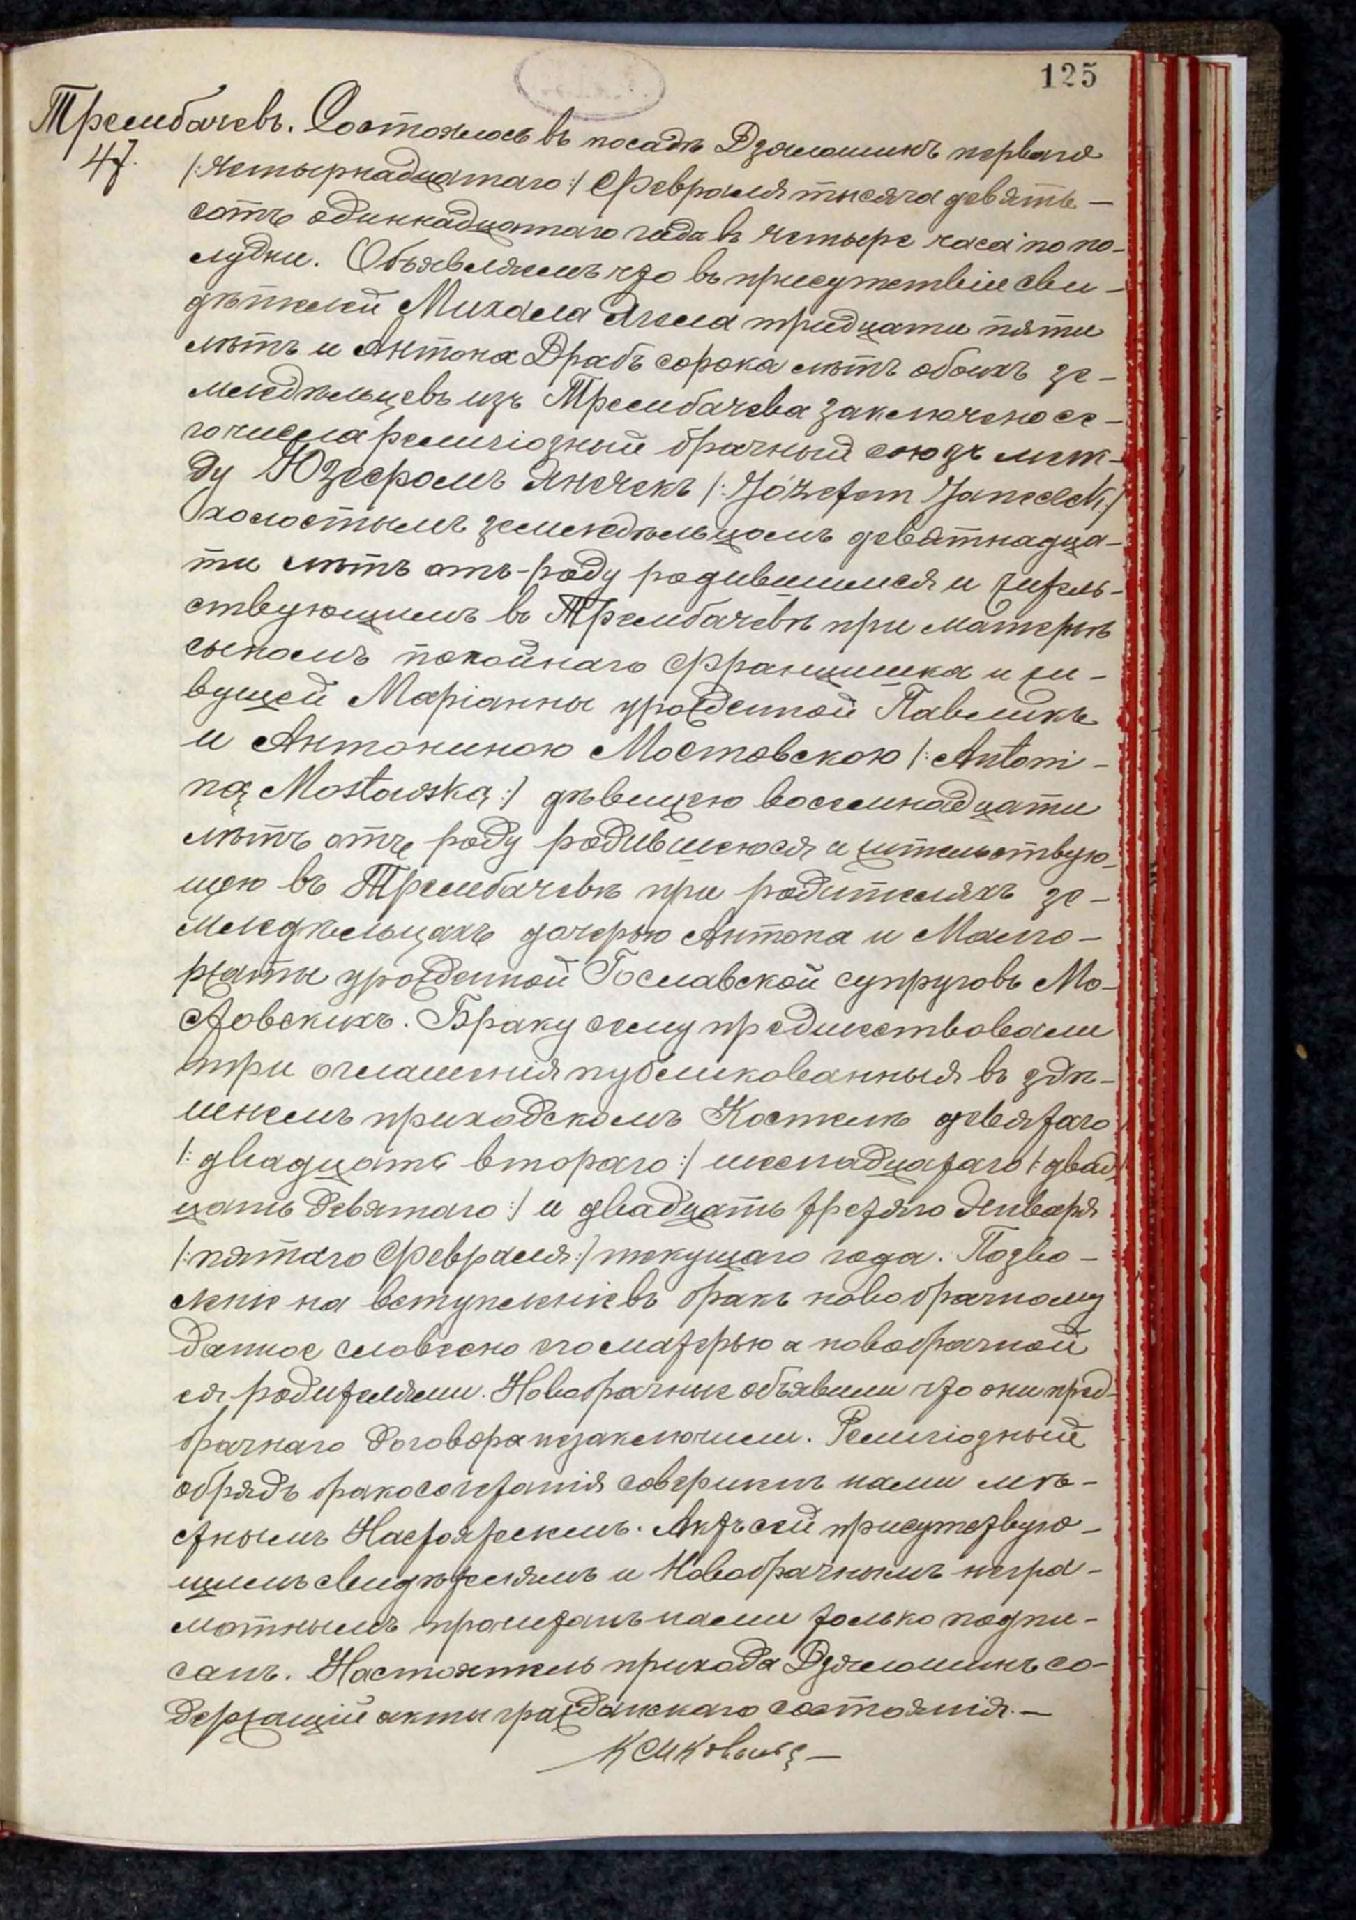 125
Трембачевъ. Состоялось въ посадѣ Дзялошинъ перваго
47.
/:четырнадцатаго:/ Февраля тысяча девять-
сотъ одиннадцатаго года въ четыре часа по по-
лудни. Объявляемъ что въ присутствіи сви-
дѣтелей Михала тридцати пяти
лѣтъ и Антона Драбъ сорока лѣтъ обоихъ зе-
мледѣльцевъ изъ Трембачева заключено се-
го числа религіозный брачный союзъ меж-
ду Юзефомъ Янечекъ /:Józefem Janeczek:/
холостымъ земледѣльцомъ девятнадца-
ти лѣтъ отъ-роду родившимся и житель-
ствующимъ въ Трембачевѣ при матери
сыномъ покойнаго Францишка и жи-
вущей Маріанны урожденной Павликъ
и Антониною Мостовскою /:Antoni-
ną Mostowską:/ дѣвицею восемнадцати
лѣтъ отъ роду родившеюся и жительствую-
щею въ Трембачевѣ при родителяхъ зе-
мледѣльцахъ дочерью Антона и Малго-
ржаты урожденной Гославской супруговъ Мо-
стовскихъ. Браку сему предшествовали
три оглашенія публикованныя въ здѣ-
шнемъ приходскомъ Костелѣ девятаго
/:двадцать втораго:/ шеснадцатаго /:двад-
цать девятаго:/ и двадцать третяго Января
/:пятаго Февраля:/ текущаго года. Позво-
леніе на вступленіе въ бракъ новобрачному
данное словесно его матерью а новобрачной
ея родителями. Новобрачные объявили что они пред-
брачнаго договора незаключили. Религіозный
обрядъ бракосочетанія совершенъ нами мѣ-
стнымъ Настоятелемъ. Актъ сей присутствую-
щимъ свидѣтелямъ и Новобрачнымъ негра-
мотнымъ прочитанъ нами только подпи-
санъ. Настоятель прихода Дзялошинъ со-
держащій акты гражданскаго состоянія.—